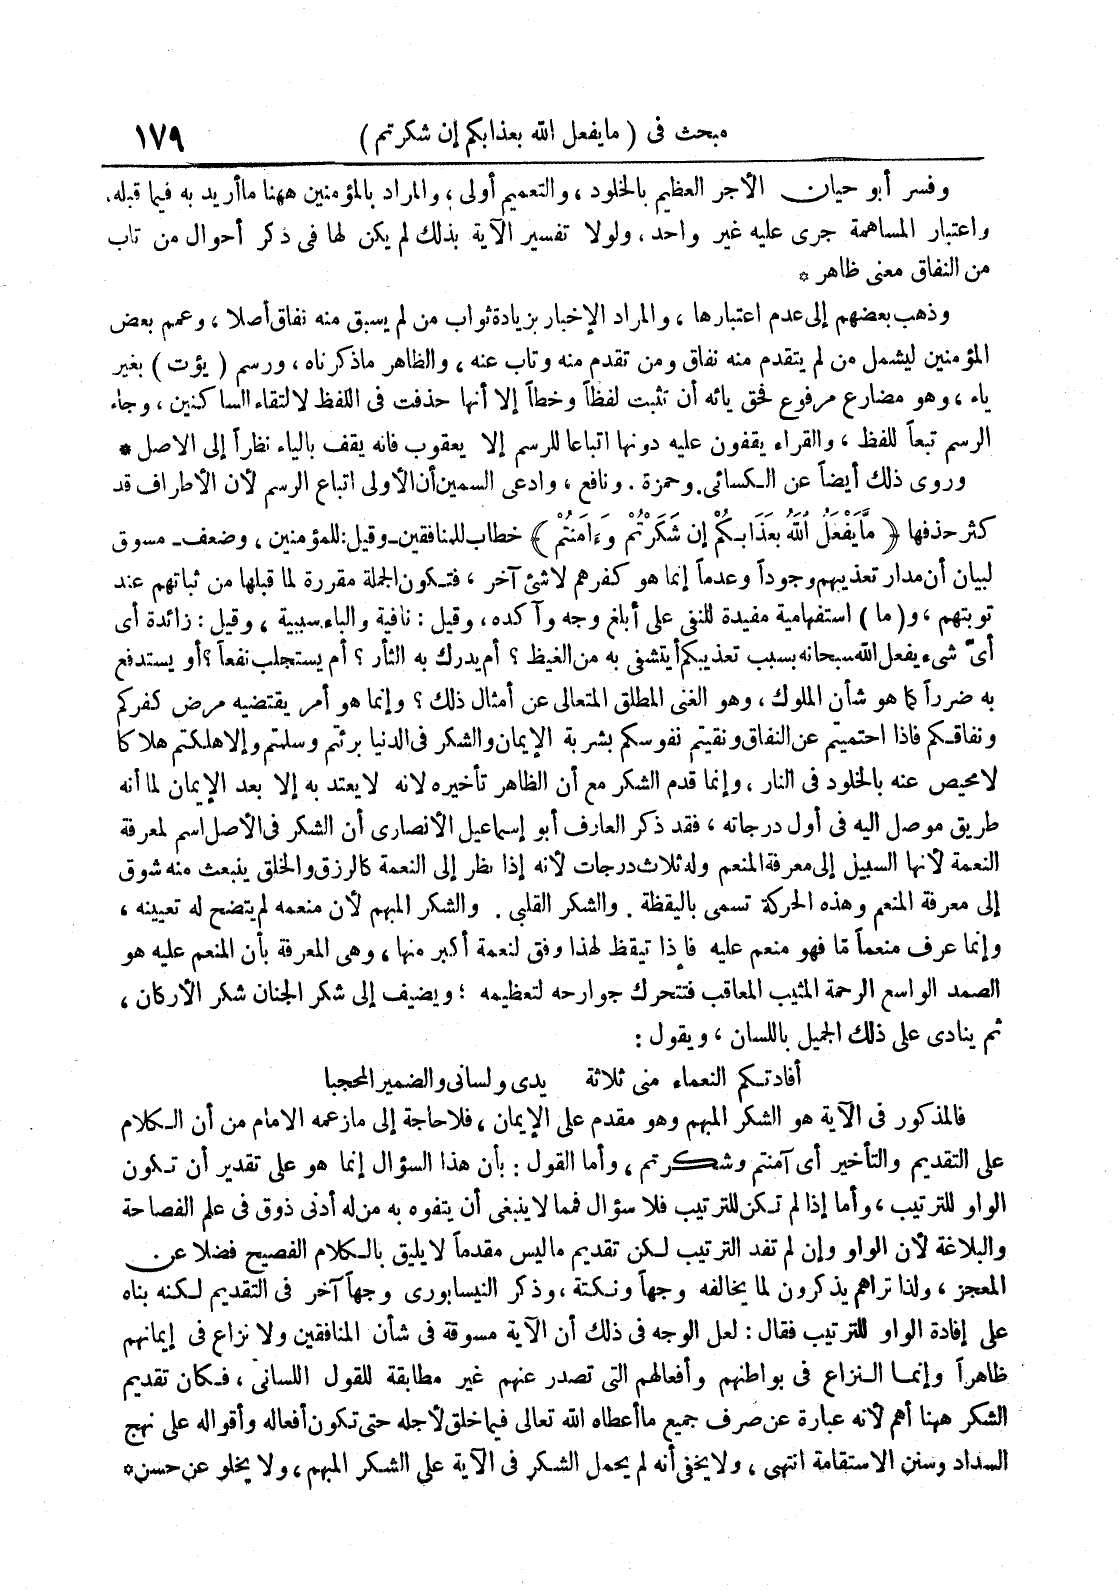 مبحث فى ( مايفعل الله بعذابكم إن شكرتم ) ١٧٩
وفسر أبو حيان الأجر العظيم بالخلود ، والتعميم أولى ، والمراد بالمؤمنين ههنا ماأريد به فيما قبله .
واعتبار المساهمة جرى عليه غير واحد ، ولولا تفسير الآية بذلك لم يكن لها فى ذكر أحوال من تاب
من النفاق معنى ظاهر *
وذهب بعضهم إلى عدم اعتبارها ، والمراد الإخبار بزيادة ثواب من لم يسبق منه نفاق أصلا ، وعمم بعض
المؤمنين ليشمل من لم يتقدم منه نفاق ومن تقدم منه وتاب عنه ، والظاهر ماذكرناه ، ورسم ( يؤت ) بغير
ياء ، وهو مضارع مرفوع فحق يائه أن تثبت لفظاً وخطاً إلا أنها حذفت فى اللفظ لالتقاء الساكنين ، وجاء
الرسم تبعاً للفظ ، والقراء يقفون عليه دونها اتباعا للرسم إلا يعقوب فانه يقف بالياء نظراً إلى الاصل *
وروى ذلك أيضاً عن الكسائى . وحمزة . ونافع ، وادعى السمين أن الأولى اتباع الرسم لأن الأطراف قد
كثر حذفها ﴿ مَّايَفْعَلُ اللَّهُ بعَذَابكُمْ إن شَكَرْتُمْ وَءَامَنتُمْ ﴾ خطاب للمنافقين ــ وقيل : للمؤمنين ، وضعف ــ مسوق
لبيان أن مدار تعذيبهم وجوداً وعدماً إنما هو كفرهم لاشئ آخر ، فتكون الجملة مقررة لما قبلها من ثباتهم عند
توبتهم ، و( ما ) استفهامية مفيدة للنفى على أبلغ وجه وآكده ، وقيل : نافية والباء سببية ، وقيل : زائدة أى
أىّ شىء يفعل الله سبحانه بسبب تعذيبكم أيتشفى به من الغيظ ؟ أم يدرك به الثأر ؟ أم يستجلب نفعاً ؟ أو يستدفع
به ضرراً كما هو شأن الملوك ، وهو الغنى المطلق المتعالى عن أمثال ذلك ؟ وإنما هو أمر يقتضيه مرض كفركم
ونفاقكم فاذا احتميتم عن النفاق ونقيتم نفوسكم بشربة الإيمان والشكر فى الدنيا برئتم وسلمتم وإلا هلكتم هلاكا
لامحيص عنه بالخلود فى النار ، وإنما قدم الشكر مع أن الظاهر تأخيره لانه لايعتد به إلا بعد الإيمان لما أنه
طريق موصل اليه فى أول درجاته ، فقد ذكر العارف أبو إسماعيل الأنصارى أن الشكر فى الأصل اسم لمعرفة
النعمة لأنها السبيل إلى معرفة المنعم وله ثلاث درجات لأنه إذا نظر إلى النعمة كالرزق والخلق ينبعث منه شوق
إلى معرفة المنعم وهذه الحركة تسمى باليقظة . والشكر القلبى . والشكر المبهم لأن منعمه لم يتضح له تعيينه ،
وإنما عرف منعماً مّا فهو منعم عليه فإذا تيقظ لهذا وفق لنعمة أكبر منها ، وهى المعرفة بأن المنعم عليه هو
الصمد الواسع الرحمة المثيب المعاقب فتتحرك جوارحه لتعظيمه ؛ ويضيف إلى شكر الجنان شكر الأركان ،
ثم ينادى على ذلك الجميل باللسان ، ويقول :
أفادتكم النعماء منى ثلاثة يدى ولسانى والضمير المحجبا
فالمذكور فى الآية هو الشكر المبهم وهو مقدم على الإيمان ، فلاحاجة إلى مازعمه الامام من أن الكلام
على التقديم والتأخير أى آمنتم وشكرتم ، وأما القول : بأن هذا السؤال إنما هو على تقدير أن تكون
الواو للترتيب ، وأما إذا لم تكن للترتيب فلا سؤال فمما لاينبغى أن يتفوه به من له أدنى ذوق فى علم الفصاحة
والبلاغة لأن الواو وإن لم تفد الترتيب لكن تقديم ماليس مقدماً لايليق بالكلام الفصيح فضلا عن
المعجز ، ولذا تراهم يذكرون لما يخالفه وجهاً ونكتة ، وذكر النيسابورى وجهاً آخر فى التقديم لكنه بناه
على إفادة الواو للترتيب فقال : لعل الوجه فى ذلك أن الآية مسوقة فى شأن المنافقين ولا نزاع فى إيمانهم
ظاهراً وإنما النزاع فى بواطنهم وأفعالهم التى تصدر عنهم غير مطابقة للقول اللسانى ، فكان تقديم
الشكر ههنا أهم لأنه عبارة عن صرف جميع ماأعطاه الله تعالى فيما خلق لأجله حتى تكون أفعاله وأقواله على نهج
السداد وسنن الاستقامة انتهى ، ولايخفى أنه لم يحمل الشكر فى الآية على الشكر المبهم ، ولا يخلو عن حسن *